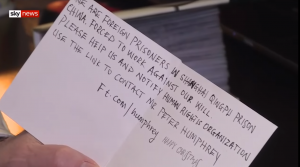 sky news
WE ARE FOREIGN PRISONERS IN SHANGHAI QINGPU PRISON
CHINA. FORCED TO WORK AGAINST OUR WILL.
PLEASE HELP US AND NOTIFY HUMAN RIGHTS ORGANIZATION
USE THE LINK TO CONTACT MR PETER HUMPHREY
Ft.com/humphrey